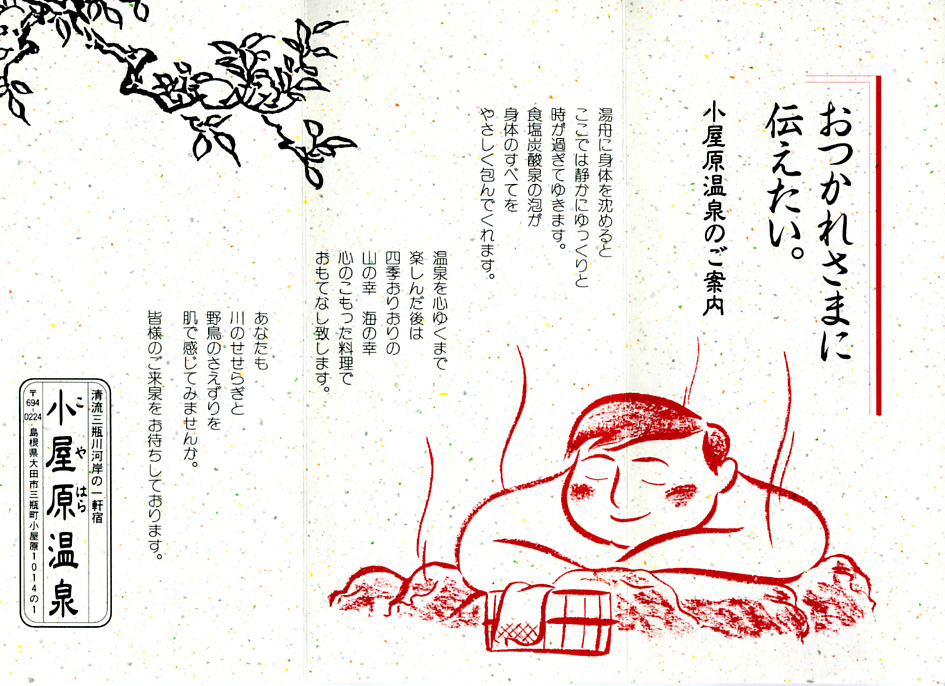 おつかれさまに
伝えたい。
小屋原温泉のご案内
湯舟に身体を沈めると
ここでは静かにゆっくりと
時が過ぎてゆきます。
食塩炭酸泉の泡が
身体のすべてを
やさしく包んでくれます。
温泉を心ゆくまで
楽しんだ後は
四季おりおりの
山の幸 海の幸
心のこもった料理で
おもてなし致します。
あなたも
川のせせらぎと
野鳥のさえずりを
肌で感じてみませんか。
皆様のご来泉をお待ちしております。
清流三瓶川河岸の一軒宿
こ や はら
小屋原温泉
〒694-0224 島根県大田市三瓶町小屋原1014の1